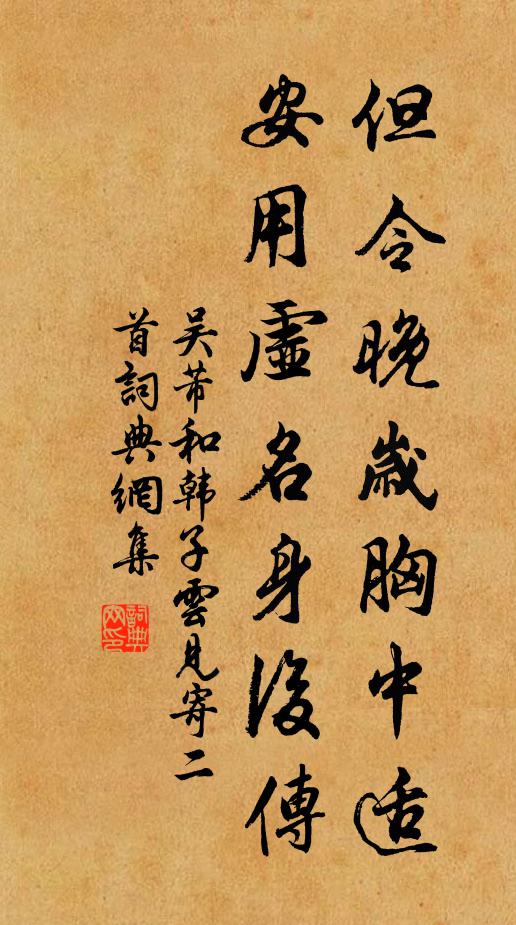 但令晚歲胸中适
安用虛名身後傳
吴芾和韩子雲見寄二
首詞典網集
詞典網印